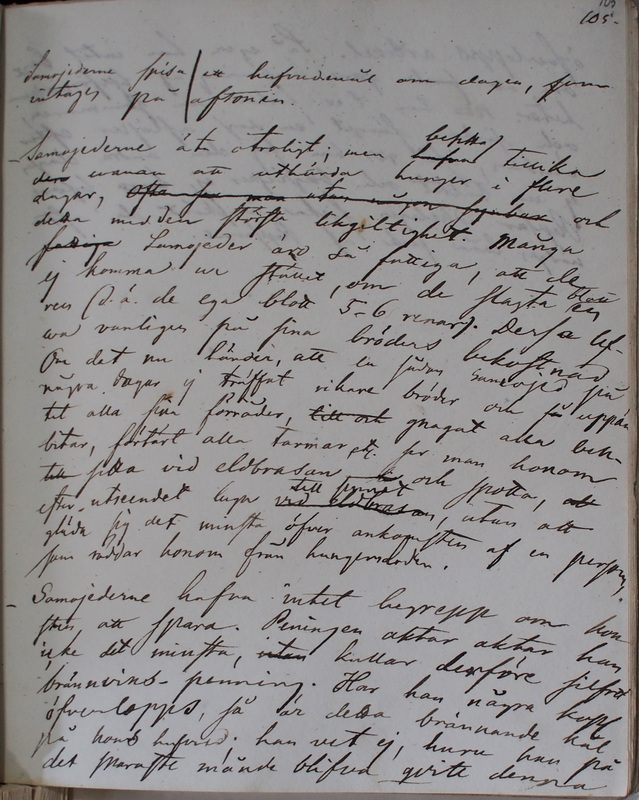 105
105.
Samojederne spisa ett hufvudmål om dagen, som
intages på aftonen.
Samojederne äta otroligt; men besitta tillika
den wanan att uthärda hunger i flere
dagar, och
detta med den största likgiltighet. Många
Samojeder äro så fattiga, att de
ej komma ur stället, om de slagta blott en
ren (d.ä. de ega blott 5-6 renar). Dessa lef-
wa vanligen på sina bröders bekostnad
Om det nu händer, att en sådan Samojed på
några dagar ej träffat rikare bröder och så uppätit
alla sina förråder, gnagat alla ben-
bitar, förtärt alla tarmar etc. ser man honom
sitta vid eldbrasan och spotta,
efter utseendet lugn till sinnet, utan att
gläda sig det minsta öfver ankomsten af en person,
som räddar honom från hungersdöden.
Samojederne hafva intet begrepp om kon-
sten, att spara. Penningen aktar aktar han
icke det minsta, kallar derföre silfret
brännvins-penning. Har han några kop.
öfverlopps, så är detta brännande kol
på hans hufvud; han vet ej, huru han på
det snaraste månde blifva qvitt denna